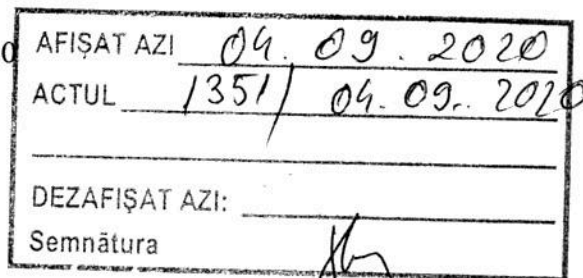 AFIŞAT AZI 04. 09. 2020
ACTUL 1351/ 04. 09. 2020
DEZAFIŞAT AZI:
Semnătura